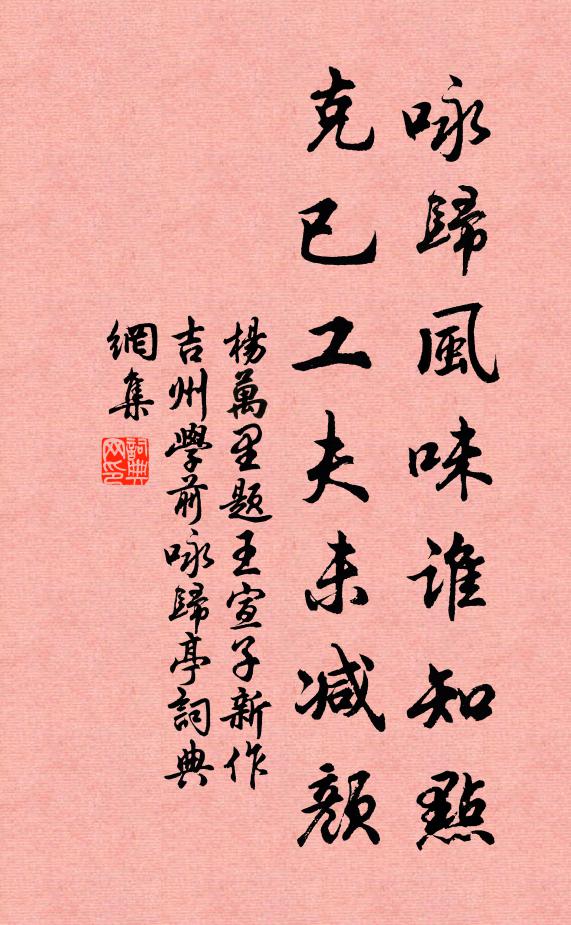 咏歸風味誰知點
克已工夫未減顏
楊萬里題王宣子新作
吉州學前咏歸亭詞典
網集
詞典网印